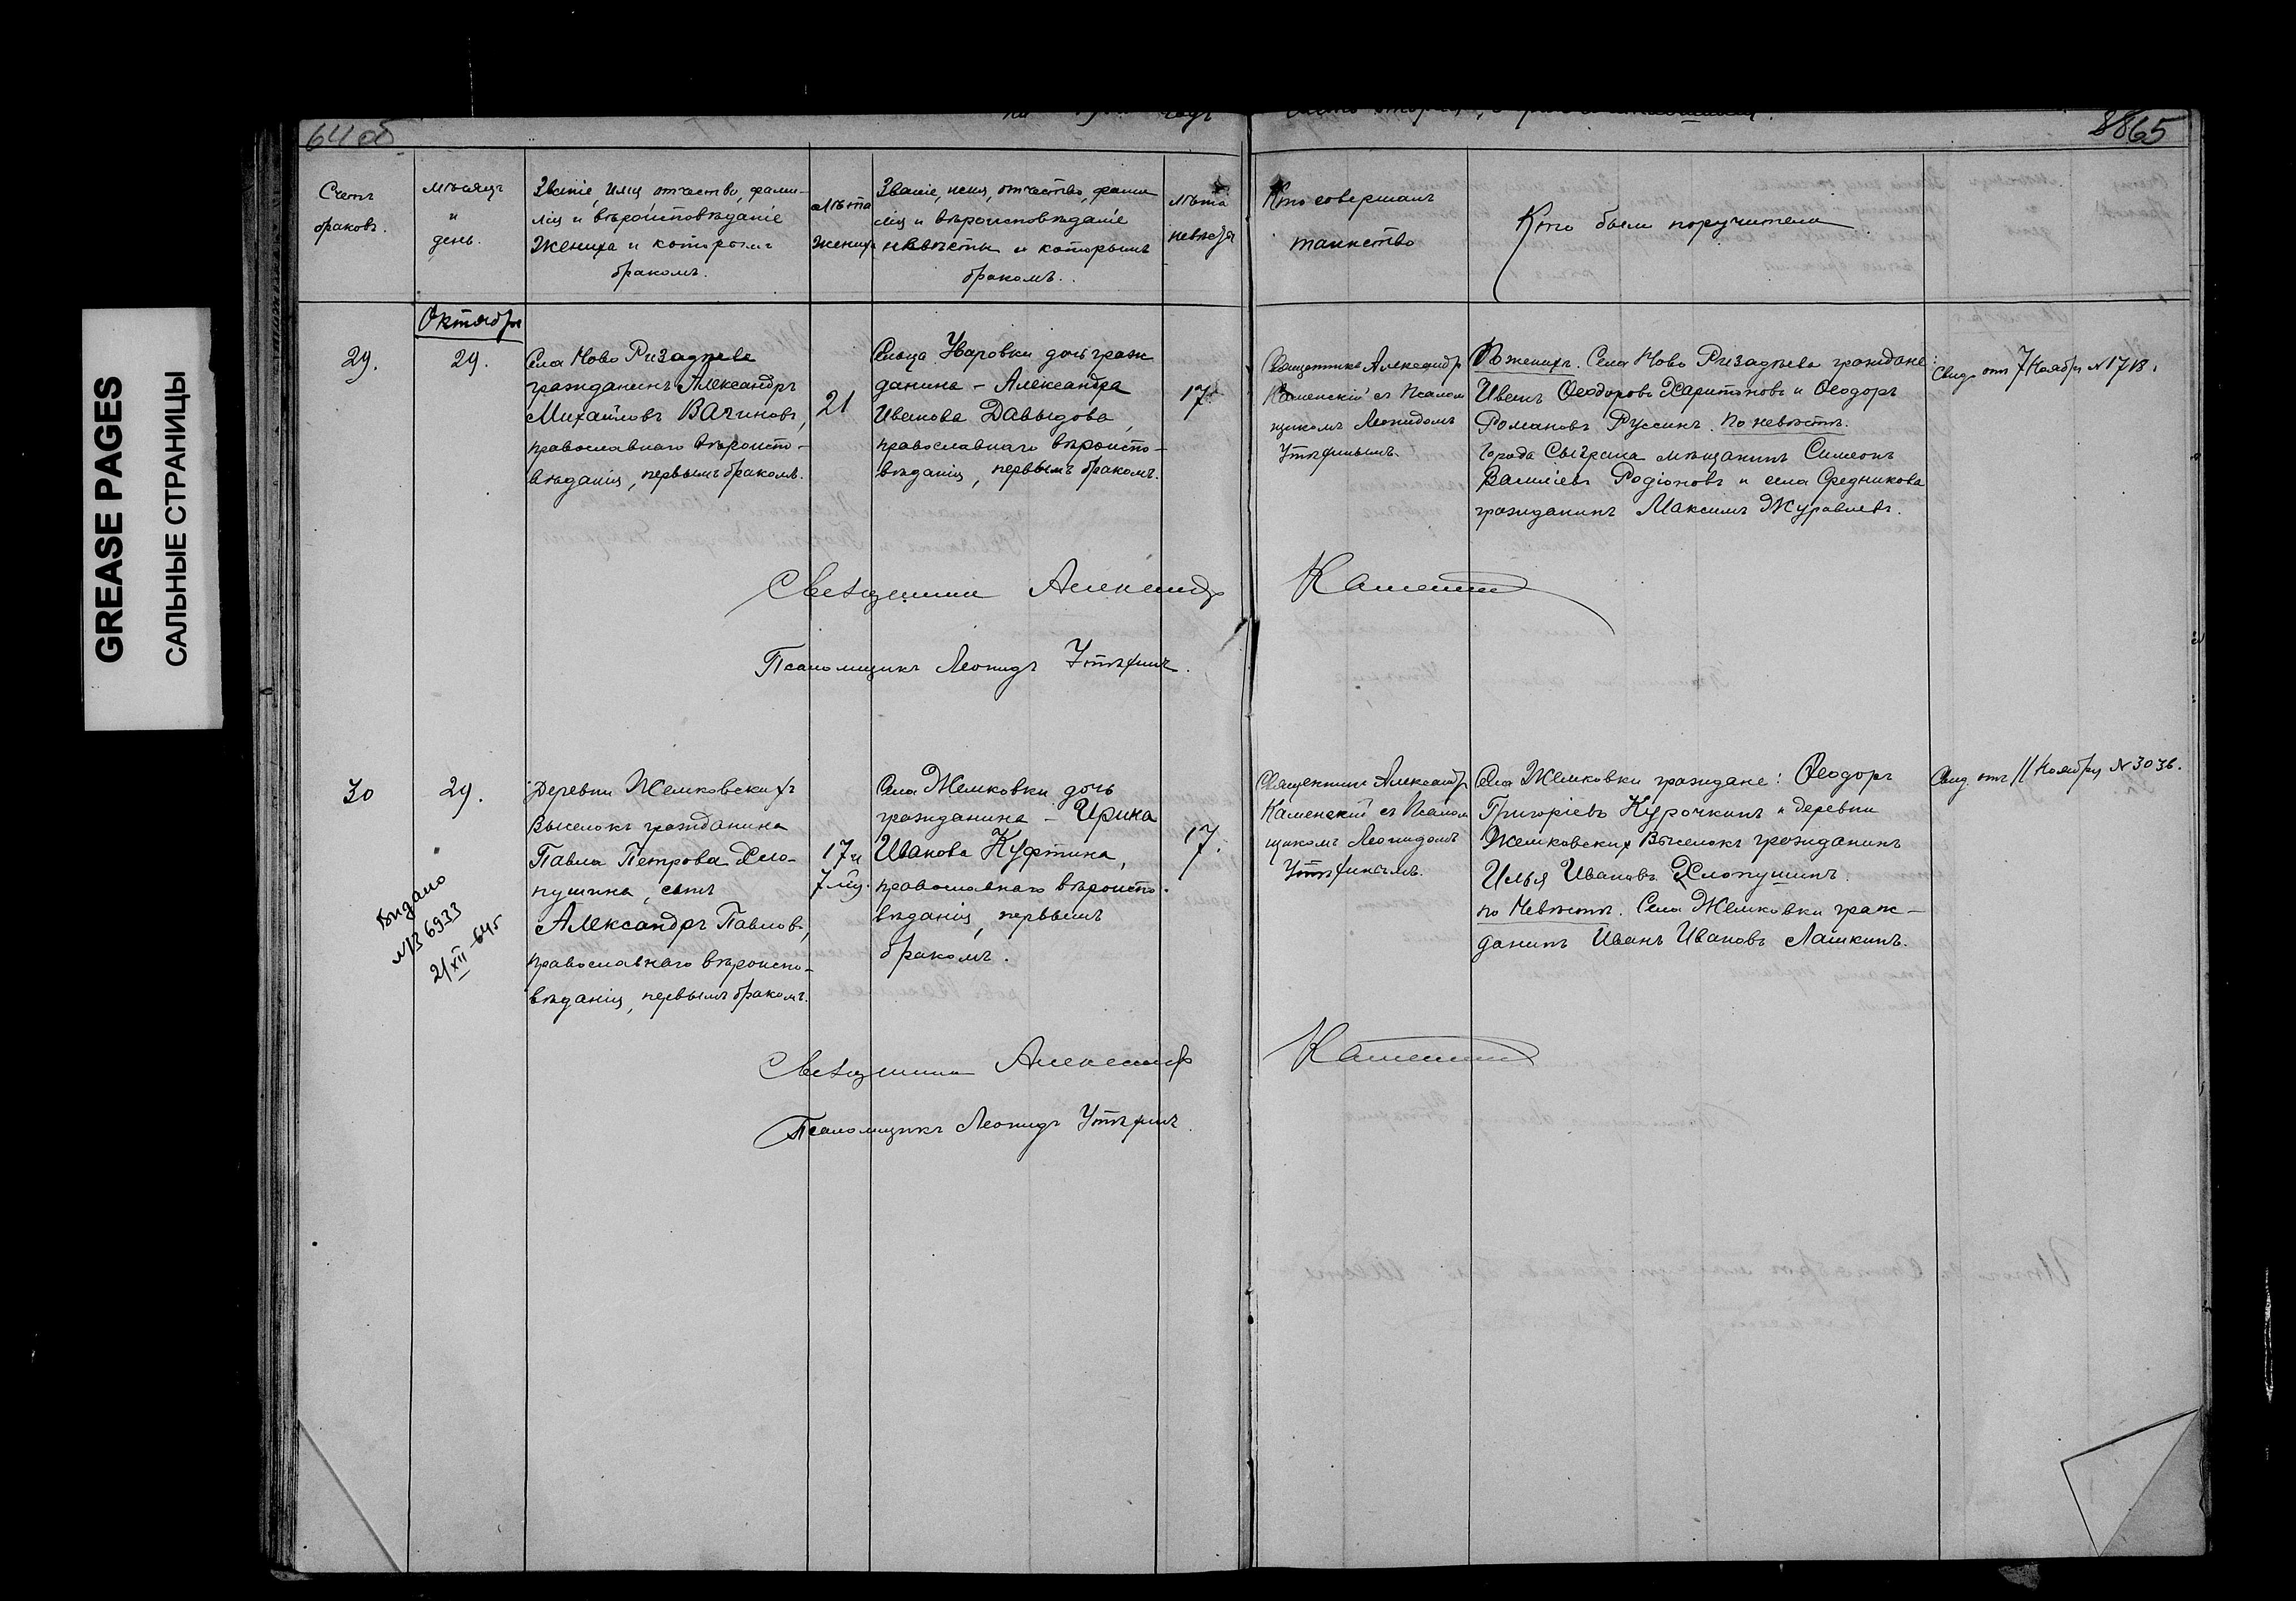 GREASE PAGES
САЛЬНЫЕ СТРАНИЦЫ
64 об
8865
Счетъ
браковъ.
мѣсяцъ
и
день.
Званіе, имя, отчество, фами-
лія и вѣроисповѣданіе
жениха и которымъ
бракомъ.
Лѣта
жениха
Званіе, имя, отчество, фами
лія и вѣроисповѣданіе
невѣсты и которымъ
бракомъ.
Лѣта
невѣсты
Кто совершалъ
таинство
Кто были поручители
Октября
29.
29.
Села Ново Ризадѣева
гражданинъ Александръ
Михаиловъ Вагиновъ,
православнаго вѣроиспо-
вѣданія, первымъ бракомъ.
21
Сельца Уваровки дочь граж
данина - Александра
Иванова Давыдова,
православнаго вѣроиспо-
вѣданія, первымъ бракомъ.
17
Священникъ Александръ
Каменскій съ Псалом
щикомъ Леонидомъ
Утѣхинымъ.
По женихѣ. Села Ново Ризадѣева граждане:
Иванъ Ѳеодоровъ Харитоновъ и Ѳеодоръ
Романовъ Руссинъ. По невѣстѣ.
Города Сызрана мѣщанинъ Симеонъ
Василіевъ Родіоновъ и села Средникова
гражданинъ Максимъ Журавлевъ.
Свид. отъ 7 Ноября № 1718.
Священникъ Александръ Каменскій
Псаломщикъ Леонидъ Утѣхинъ.
30
29.
Деревни Жемковскихъ
Выселокъ гражданина
Павла Петрова Хло-
пушина, сынъ
Александръ Павловъ,
православнаго вѣроиспо-
вѣданія, первымъ бракомъ.
17 и
7 мѣс.
Села Жемковки дочь
гражданина - Ирина
Иванова Куфтина,
православнаго вѣроиспо-
вѣданія, первымъ
бракомъ.
17.
Священникъ Александръ
Каменскій съ Псалом
щикомъ Леонидомъ
Утѣхинымъ.
Села Жемковки граждане: Ѳеодоръ
Григоріевъ Курочкинъ и деревни
Жемковскихъ Выселокъ гражданинъ
Илья Ивановъ Хлопушинъ.
по Невѣстѣ. Села Жемковки граж-
данинъ Иванъ Ивановъ Лашкинъ.
Свид. отъ 11 Ноября № 3036.
Выдано
2/XII-64г
Священникъ Александръ Каменскій
Псаломщикъ Леонидъ Утѣхинъ.